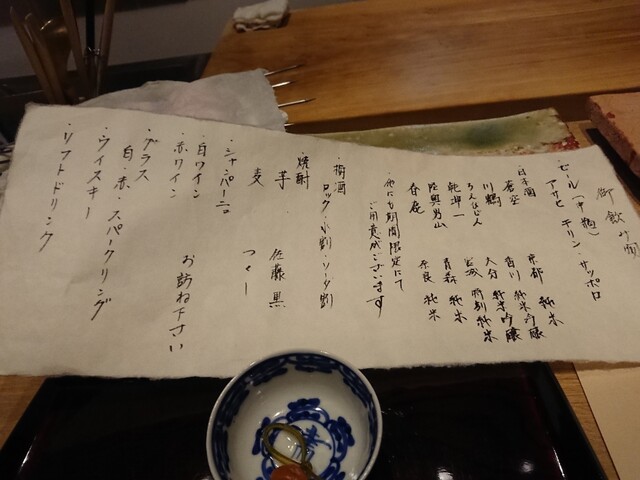 御飲み物
・ビール(中瓶)
アサヒ・キリン・サッポロ
・日本酒
蒼空 京都 純米
川鶴 香川 純米吟醸
ちえびじん 大分 純米吟醸
乾坤一 宮城 特別純米
陸奥男山 青森 純米
春鹿 奈良 純米
・他にも期間限定にて
ご用意がございます
・梅酒
ロック・水割・ソーダ割
・焼酎
芋 佐藤 黒
麦 つくし
・シャンパーニュ
・白ワイン
・赤ワイン お訪ね下さい
・グラス
白・赤・スパークリング
・ウイスキー
・ソフトドリンク